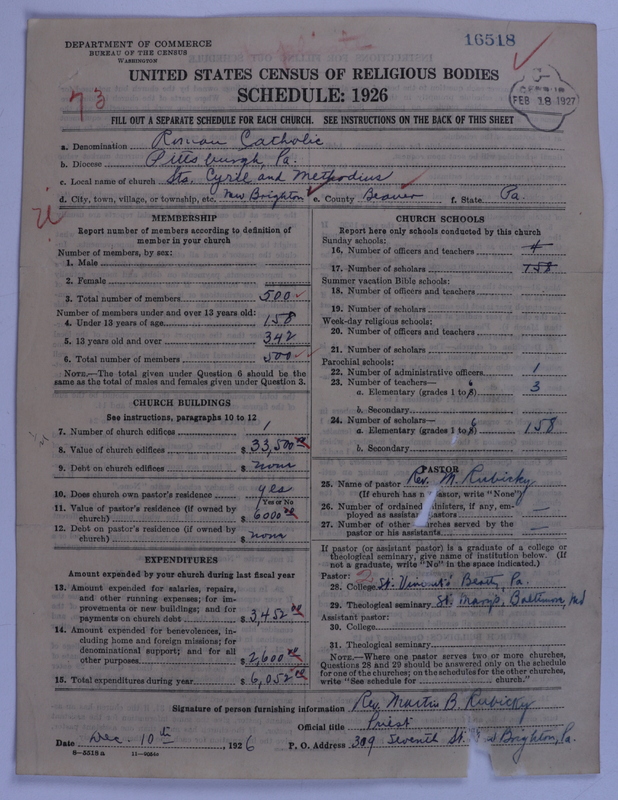 DEPARTMENT OF COMMERCE
BUREAU OF THE CENSUS
WASHINGTON
16518
UNITED STATES CENSUS OF RELIGIOUS BODIES
SCHEDULE: 1926
73
CENSUS
FEB 18 1927
FILL OUT A SEPARATE SCHEDULE FOR EACH CHURCH. SEE INSTRUCTIONS ON THE BACK OF THIS SHEET
a. Denomination Roman Catholic
b. Diocese Pittsburgh, Pa.
c. Local name of church Sts. Cyril and Methodius
d. City, town, village, or township, etc. New Brighton e. County Beaver f. State Pa.
MEMBERSHIP
Report number of members according to definition of
member in your church
Number of members, by sex:
1. Male
2. Female
3. Total number of members 500
Number of members under and over 13 years old:
4. Under 13 years of age 158
5. 13 years old and over 342
6. Total number of members 500
NOTE.—The total given under Question 6 should be
same as the total of males and females given under Question 3.
CHURCH BUILDINGS
See instructions, paragraphs 10 to 12
7. Number of church edifices 1
8. Value of church edifices $ 33,500.00
9. Debt on church edifices $ none
10. Does church own pastor's residence yes
Yes or No
11. Value of pastor's residence (if owned by
church) $ 6000.00
12. Debt on pastor's residence (if owned by
church) $ none
EXPENDITURES
Amount expended by your church during last fiscal year
13. Amount expended for salaries, repairs,
and other running expenses; for im-
provements or new buildings; and for
payments on church debt $ 3,452.00
14. Amount expended for benevolences, in-
cluding home and foreign missions; for
denominational support; and for all
other purposes $ 2,600.00
15. Total expenditures during year $ 6,052.00
CHURCH SCHOOLS
Report here only schools conducted by this church
Sunday schools:
16. Number of officers and teachers 4
17. Number of scholars 158
Summer vacation Bible schools:
18. Number of officers and teachers
19. Number of scholars
Week-day religious schools:
20. Number of officers and teachers
21. Number of scholars
Parochial schools:
22. Number of administrative officers 1
23. Number of teachers—
a. Elementary (grades 1 to 8) 6 3
b. Secondary
24. Number of scholars—
a. Elementary (grades 1 to 8) 6 158
b. Secondary
PASTOR
25. Name of pastor Rev. M. Rubicky
(If church has no pastor, write "None")
26. Number of ordained ministers, if any, em-
ployed as assistant pastors —
27. Number of other churches served by the
pastor or his assistants —
If pastor (or assistant pastor) is a graduate of a college or
theological seminary, give name of institution below. (If
not a graduate, write "No" in the space indicated.)
Pastor:
28. College St. Vincent's Beatty Pa.
29. Theological seminary St. Mary's, Baltimore, Md
Assistant pastor:
30. College
31. Theological seminary
NOTE.—Where one pastor serves two or more churches,
Questions 28 and 29 should be answered only on the schedule
for one of the churches; on the schedules for the other churches,
write "See schedule for church."
Signature of person furnishing information Rev. Martin B. Rubicky
Official title Priest
Date Dec. 10th, 1926 P. O. Address 309 Seventh St. Brighton, Pa.
8—5518 a 11—9054a